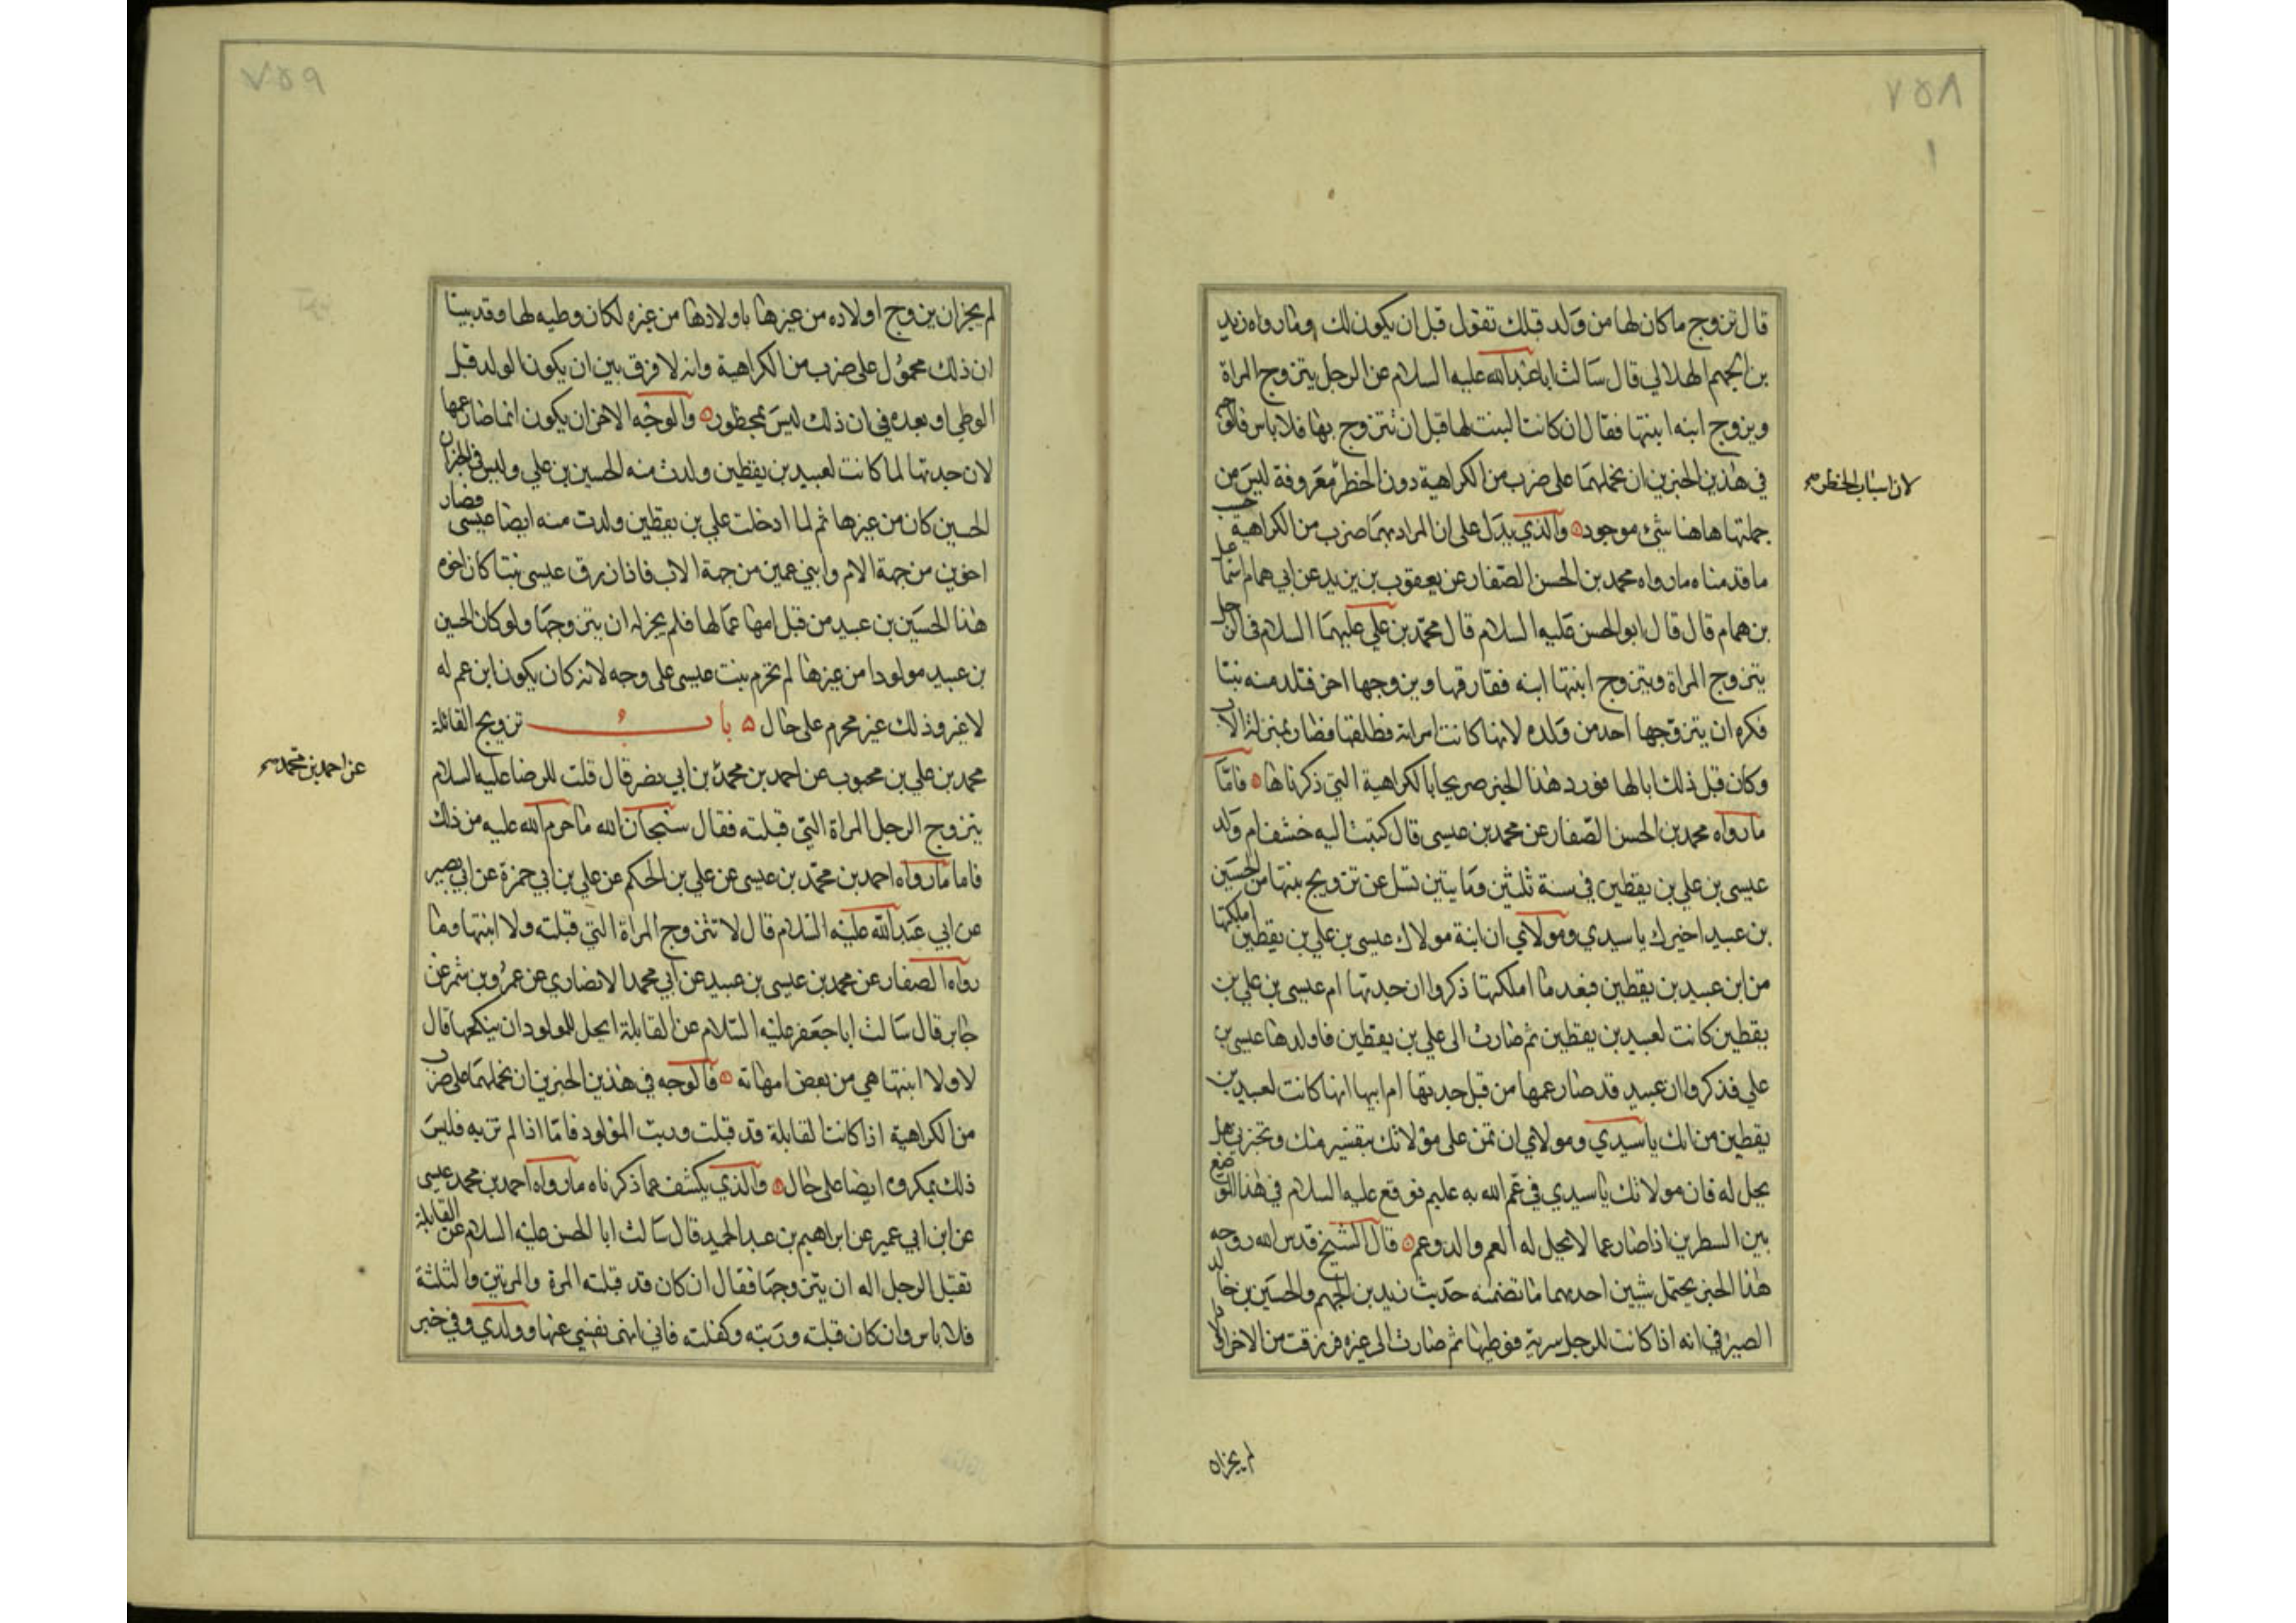 ٧٥٨
١
قال تزوج ما كان لها من ولد قبلك تقول قبل ان يكون لك وما رواه زيد
بن الجهم الهلالي قال سالت ابا عبدالله عليه السلام عن الرجل يتزوج المراة
ويزوج ابنه ابنتها فقال ان كانت البنت لها قبل ان تتزوج بها فلا باس فالوجه
في هذين الخبرين ان نحملهما على ضرب من الكراهية دون الحظر معروفة ليس من
لان اسباب الحظر صح
جملتها هاهنا شئ موجود والذي يدل على ان المراد بهما ضرب من الكراهية حسب
ما قدمناه ما رواه محمد بن الحسن الصفار عن يعقوب بن يزيد عن ابي همام اسماعيل
بن همام قال قال ابو الحسن عليه السلام قال محمد بن علي عليهما السلام في الرجل
يتزوج المراة ويتزوج ابنتها ابنه ففارقها ويزوجها اخر فتلد منه بنتا
فكره ان يتزوجها احد من ولده لانها كانت امراته فطلقها فصار بمنزلة الاب
وكان قبل ذلك ابا لها فورد هذا الخبر صريحا بالكراهية التي ذكرناها فاما
ما رواه محمد بن الحسن الصفار عن محمد بن عيسى قال كتبت اليه خشف ام ولد
عيسى بن علي بن يقطين في سنة ثلثين ومايتين تسل عن تزويج بنتها من الحسين
بن عبيد اخبرك يا سيدي ومولاي ان ابنة مولاك عيسى بن علي بن يقطين املكتها
من ابن عبيد بن يقطين فبعد ما املكتها ذكروا ان جدتها ام عيسى بن علي بن
يقطين كانت لعبيد بن يقطين ثم صارت الى علي بن يقطين فاولدها عيسى بن
علي فذكروا ان عبيد قد صار عمها من قبل جدتها ام ابيها انها كانت لعبيد بن
يقطين من الك يا سيدي ومولاي ان تمن على مولاتك بتفسير منك وتخبرني هل
يحل له فان مولاتك يا سيدي في غم الله به عليم فوقع عليه السلام في هذا الموضع
بين السطرين اذا صار عما لا تحل له العم والد وعم قال الشيخ قدس الله روحه
هذا الخبر يحتمل شيين احدهما ما تضمنه حديث زيد بن الجهم والحسين بن خالد
الصيرفي انه اذا كانت للرجل سرية فوطيها ثم صارت الى غيره فرزقت من الاخر اولادا
لم يجز ان
٧٥٩
لم يجز ان يزوج اولاده من غيرها باولادها من غيره لكان وطيه لها وقد بينا
ان ذلك محمول على ضرب من الكراهية وانه لا فرق بين ان يكون الولد قبل
الوطي او بعده في ان ذلك ليس بمحظور والوجه الاخر ان يكون انما صار عمها
لان جدتها لما كانت لعبيد بن يقطين ولدت منه الحسين بن علي وليس في الخبر ان
الحسين كان من غيرها ثم لما ادخلت علي بن يقطين ولدت منه ايضا عيسى فصارا
اخوين من جهة الام وابني عمين من جهة الاب فاذا رزق عيسى بنتا كان اخوه
هذا الحسين بن عبيد من قبل امها عما لها فلم يجز له ان يتزوجها ولو كان الحسين
بن عبيد مولودا من غيرها لم تحرم بنت عيسى على وجه لانه كان يكون ابن عم له
لا غير وذلك غير محرم على حال باب تزويج القابلة
محمد بن علي بن محبوب عن احمد بن محمد بن ابي نصر قال قلت للرضا عليه السلام
عن احمد بن محمد صح
يتزوج الرجل المراة التي قبلته فقال سبحان الله ما حرم الله عليه من ذلك
فاما ما رواه احمد بن محمد بن عيسى عن علي بن الحكم عن علي بن ابي حمزة عن ابي بصير
عن ابي عبدالله عليه السلام قال لا تتزوج المراة التي قبلته ولا ابنتها وما
رواه الصفار عن محمد بن عيسى بن عبيد عن ابي محمد الانصاري عن عمرو بن شمر عن
جابر قال سالت ابا جعفر عليه السلام عن القابلة ايحل للمولود ان ينكحها قال
لا ولا ابنتها هي من بعض امهاته فالوجه في هذين الخبرين ان نحملهما على ضرب
من الكراهية اذا كانت القابلة قد قبلت وربت المولود فاما اذا لم تربه فليس
ذلك بمكروه ايضا على حال والذي يكشف عما ذكرناه ما رواه احمد بن محمد عيسى
عن ابن ابي عمير عن ابراهيم بن عبد الحميد قال سالت ابا الحسن عليه السلام عن القابلة
تقبل الرجل اله ان يتزوجها فقال ان كان قد قبلته المرة والمرتين والثلثة
فلا باس وان كان قبلته وربته وكفلته فاني انهى نفسي عنها وولدي وفي خبر